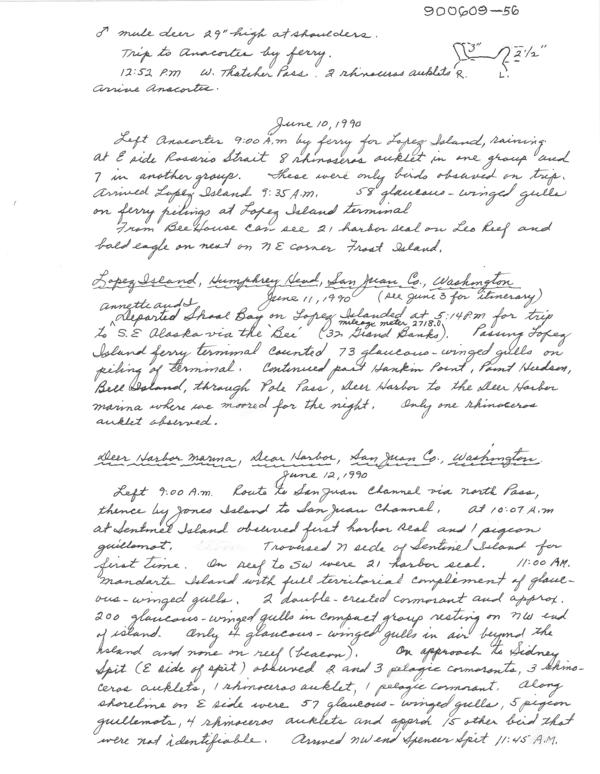 900609-56
♂ mule deer 29" high at shoulders.
Trip to Anacortes by ferry.
3" 2½"
12:52 P.M W. Thatcher Pass. 2 rhinoceros auklets R. L.
arrive Anacortes.
June 10, 1990
Left Anacortes 9:00 A.m by ferry for Lopez Island, raining
at E side Rosario Strait 8 rhinoseros auklet in one group and
7 in another group. These were only birds obsaved on trip.
Arrived Lopez Island 9:35 A.M. 58 glaucous-winged gulls
on ferry pilings at Lopez Island terminal
From BeeHouse can see 21 harbor seal on Leo Reef and
bald eagle on nest on NE corner Frost Island.
Lopez Island, Humphrey Head, San Juan Co., Washington
June 11, 1990 (see June 3 for itinerary)
annette and I
Departed Shoal Bay on Lopez Islanded at 5:14 P.M for trip
mileage meter 2718.0
to S.E Alaska via the 'Bei' (32' Grand Banks). Passing Lopez
Island ferry terminal counted 73 glaucous-winged gulls on
piling of terminal. Continued past Hankin Point, Point Hudson,
Bell Island, through Pole Pass, Deer Harbor to the Deer Harbor
marina where we moored for the night. Only one rhinoceros
auklet observed.
Deer Harbor Marina, Dear Harbor, San Juan Co., Washington
June 12, 1990
Left 9:00 A.m. Route to San Juan Channel via north Pass,
thence by Jones Island to San Juan Channel. at 10:07 A.m
at Sentinel Island observed first harbor seal and 1 pigeon
guillemot. Traversed N side of Sentinel Island for
first time. On reef to SW were 21 harbor seal. 11:00 AM.
Mandarte Island with full territorial complement of glauc-
ous-winged gulls. 2 double-crested cormorant and approx.
200 glaucous-winged gulls in compact group resting on NW end
of island. Only 4 glaucous-winged gulls in air beyond the
island and none on reef (beacon). On approach to Sidney
Spit (E side of spit) observed 2 and 3 pelagic cormorants, 3 rhino-
ceros auklets, 1 rhinoceros auklet, 1 pelagic cormorant. Along
shoreline on E side were 57 glaucous-winged gulls, 5 pigeon
guillemots, 4 rhinoceros auklets and approx 15 other bird that
were not identifiable. Arrived NW end Spencer Spit 11:45 A.M.